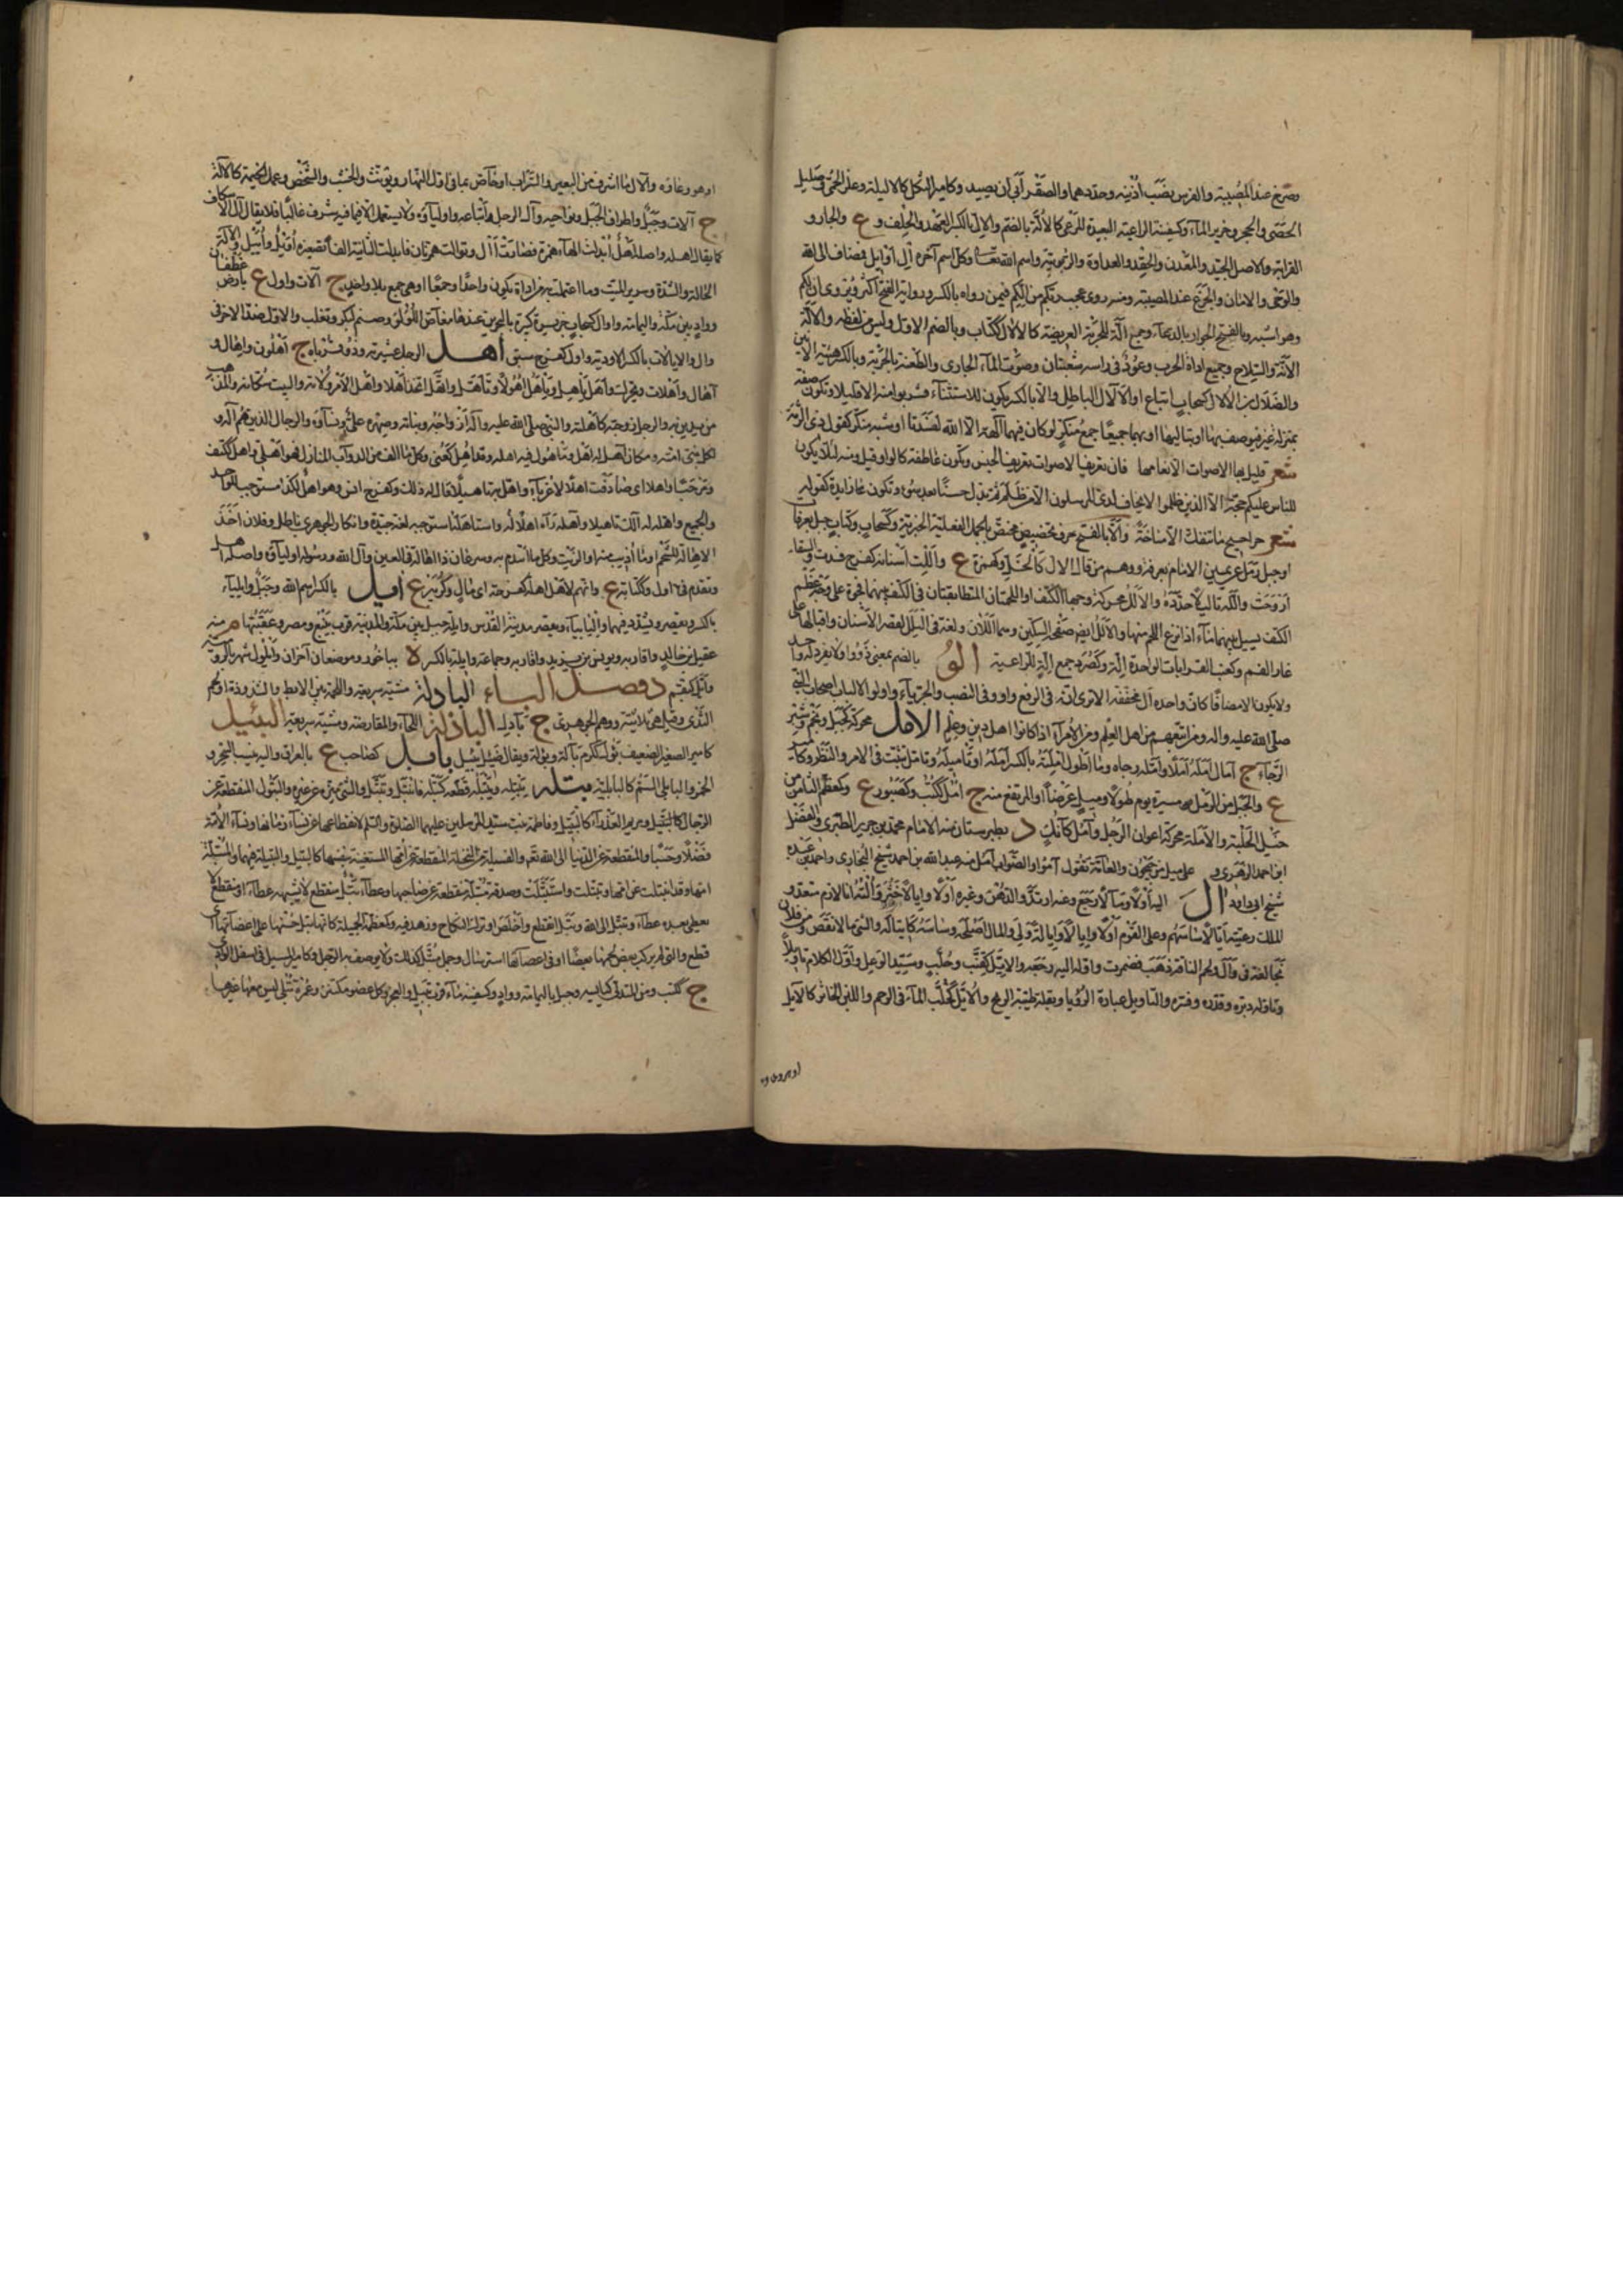 وصرخ عند المصيبة والفرس نصب اذنيه وحددهما والصقر ابى ان يصيد وكامير الثكل كالاليلة وعلز الحمى وصليل
الحصى والحجر وخرير المآء وكسفينة الراعية البعيدة المرعى كالالة بالضم والال بالكسر العهد والحلف و ع والجار و
القرابة والاصل الجيد والمعدن والحقد والعداوة والربوبية واسم الله تعا وكل اسم آخره ال او ايل فمضاف الى الله
والوحى والامان والجزع عند المصيبة ومنه روى عجب ربكم من الكم فيمن رواه بالكسر ورواية الفتح اكثر ويروى ازلكم
وهو اشبه وبالفتح الجوار بالدعآء وجمع الة للحربة العريضة كالالال ككتاب وبالضم الاول وليس من لفظه والالة
الانة والسلاح وجميع اداة الحرب وعود فى راسه شعبتان وصوت المآء الجارى والطعنة بالحربة وبالكسر هيئة الانين
والضلال بن الالال كسحاب اتباع او الالال الباطل والا بالكسر يكون للاستثنآء فشربوا منه الا قليلا وتكون صفة
بمنزلة غير فيوصف بها او بتاليها او بهما جميعا جمع منكر لو كان فيهما آلهة الا الله لفسدتا او شبه منكر كقول ذى الرمة
شعر قليل بها الاصوات الا بغامها فان تعريف الاصوات تعريف الجنس وتكون عاطفة كالواو قيل ومنه لئلا يكون
للناس عليكم حجة الا الذين ظلموا لا يخاف لدى المرسلون الا من ظلم ثم بدل حسنا بعد سوء وتكون زايدة كقوله
شعر حراجيج ما تنفك الا مناخة والا بالفتح حرف تحضيض مختص بالجمل الفعلية الخبرية وكسحاب وكتاب جبل بعرفات
او جبل رمل عن يمين الامام بعرفة ووهم من قال الال كالخل وكهمزة ع واللت اسنانه كفرح فسدت والسقآء
اروحت والله تاليلا حدده والالل محركة وجها الكتف او اللحمتان المتطابقتان فى الكتف بينهما فجوة على وجه عظم
الكتف يسيل بينهما مآء اذا نزع اللحم منها والالل ايضا صفحة السكين وهما اللان ولغة فى اليلل لقصر الاسنان واقبالها على
غار الفم وكعنب القرابات الواحدة الة وكصرد جمع الة للراعية الو بالضم بمعنى ذوو ولا يفرد له واحد
ولا يكون الا مضافا كان واحده ال مخففه الا ترى انه فى الرفع واو وفى النصب والجر يآء واولو الالباب اصحاب النبى
صلى الله عليه واله ومن اتبعهم من اهل العلم ومن الامرآء اذا كانوا اهل دين وعلم الامل محركة كجبل ونجم وشبر
الرجآء ج آمال امله املا وامله رجاه وما اطول املته بالكسر امله او تاميله وتامل تثبت فى الامر والنظر وكامير
ع والحبل من الرمل مسيرة يوم طولا وميل عرضا او المرتفع منه ج امل ككتب وكصبور ع وكمعظم الثامن من
خيل الحلبة والاملة محركة اعوان الرجل وآمل كآنك د بطبرستان منه الامام محمد بن جرير الطبرى والفضل
ابن احمد الزهرى و على ميل من جيحون والعامة تقول آمو او الصواب آمل منه عبد الله بن احمد شيخ البخارى واحمد بن عبدة
شيخ ابى داود ال اليه اولا ومآلا رجع وعنه ارتد والدهن وغيره اولا وايالا خثر والته انا لازم متعد و
الملك رعيته ايالا ساسهم وعلى القوم اولا وايالا وايالة ولى والمال اصلحه وساسه كايتاله والشى مالا نقص ومن فلان
نجا لغة فى وآل ولحم الناقة ذهب فضمرت واوله اليه رجعه والايل كقنب وخلب وسيد الوعل واول الكلام تاويلا
وتاوله دبره وقدره وفسره والتاويل عبارة الرؤيا وبقلة طيبة الريح والايل كخلب المآء فى الرحم واللبن الخاثر كالايل
او هو وعاؤه والآل ما اشرف من البعير والسراب او خاص بما فى اول النهار ويونث والخشب والشخص وعمد الخيمة كالآلة
ج آلات وجبل واطراف الجبل ونواحيه وآل الرجل واتباعه واوليآؤه ولا يستعمل الا فيما فيه شرف غالبا فلا يقال آل الاسكاف
كما يقال اهله واصله اهل ابدلت الهآء همزة فصارت أأل وتوالت همزتان فابدلت الثانية الفا تصغيره اويل واهيل والآلة
الحالة والشدة وسرير الميت وما اعتملت به من اداة يكون واحدا وجمعا او هى جمع بلا واحد ج آلات واول ع بارض غطفان
وواد بين مكة واليمامة واوال كسحاب جزيرة كبيرة بالبحرين عندها مغاص اللؤلؤ وصنم لبكر وتغلب والاول ضد الآخر فى
وال والايالات بالكسر الاودية واول كفرح سبق اهل الرجل عشيرته وذوو قرباه ج اهلون واهال و
آهال واهلات ويحرك واهل ياهل وياهل اهولا وتاهل واتهل اتخذ اهلا واهل الامر ولاته وللبيت سكانه وللمذهب
من يدين به وللرجل زوجته كاهلته وللنبى صلى الله عليه واله ازواجه وبناته وصهره على ونسآؤه والرجال الذين هم آله و
لكل نبى امته ومكان آهل له اهل وماهول فيه اهله وقد اهل كعنى وكل ما الف من الدوآب المنازل فهو اهلى واهل ككتف
ومرحبا واهلا اى صادفت اهلا لا غربآء واهل به تاهيلا قال له ذلك وكفرح انس وهو اهل لكذا مستوجب للواحد
والجميع واهله لذلك تاهيلا وآهله رآه اهلا له واستاهله استوجبه لغة جيدة وانكار الجوهرى باطل وفلان اخذ
الاهالة للشحم او ما اذيب منه او الزيت وكل ما ائتدم به وسرعان ذا اهالة فى العين وآل الله ورسوله اوليآؤه واصله اهل
وتقدم فى اول وككتابة ع وانهم لاهل اهلة كفرحة اى مال وكزبير ع ايل بالكسر اسم الله وجبل وايليآء
بالكسر ويقصر ويشدد فيهما والياء بيآء واحدة ويقصر مدينة القدس وايلة جبل بين مكة والمدينة قرب ينبع ومصر وعقبتها م منه
عقيل بن خالد واقاربه ويونس بن يزيد واقاربه وجماعة وايلة بالكسر ة بباخرز وموضعان آخران وايلول شهر بالرومية
وايل كبقم د فصل البآء البادلة مشية سريعة واللحمة بين الابط والثندوة او لحم
الثدى وقيل هى ثلاثية ووهم الجوهرى ج بآدل الباذلة اللحآء والمقارضة ومشية سريعة البئيل
كامير الصغير الضعيف بؤل ككرم بآلة وبؤلة ويقال ضئيل بئيل بابل كصاحب ع بالعراق واليه ينسب السحر و
الخمر والبابلى السم كالبابلية بتله يبتله ويبتله قطعه كبتله فانبتل وتبتل والشى ميزه عن غيره والبتول المنقطعة عن
الرجال كالبتيل ومريم العذرآء كالبتيل وفاطمة بنت سيد المرسلين عليهما الصلوة والسلم لانقطاعها عن نسآء زمانها ونسآء الامة
فضلا وحسبا والمنقطعة عن الدنيا الى الله تعم والفسيلة من النخلة المنقطعة عن امها المستغنية بنفسها كالبتيل والبتيلة فيهما والمبتلة
امها وقد انبتلت عن امها وتبتلت واستبتلت وصدقة بتلة منقطعة عن صاحبها وعطآء بتل منقطع لا يشبهه عطآء او منقطع لا
يعطى بعده عطآء وتبتل الى الله وبتل انقطع واخلص او ترك النكاح وزهد فيه وكمعظمة الجميلة كانها بتل حسنها على اعضآئها اى
قطع والتى لم يركب بعض لحمها بعضا او فى اعضآئها استرسال وجمل مبتل كذلك ولا يوصف به الرجل وكامير المسيل فى اسفل الوادى
ج ككتب ومن الشجر المتدلى كبائسه وجبل باليمامة وواد وكسفينة مآء قرب بتيل والعجز وكل عضو مكتنز وعمرة بتلى ليس معها غيرها